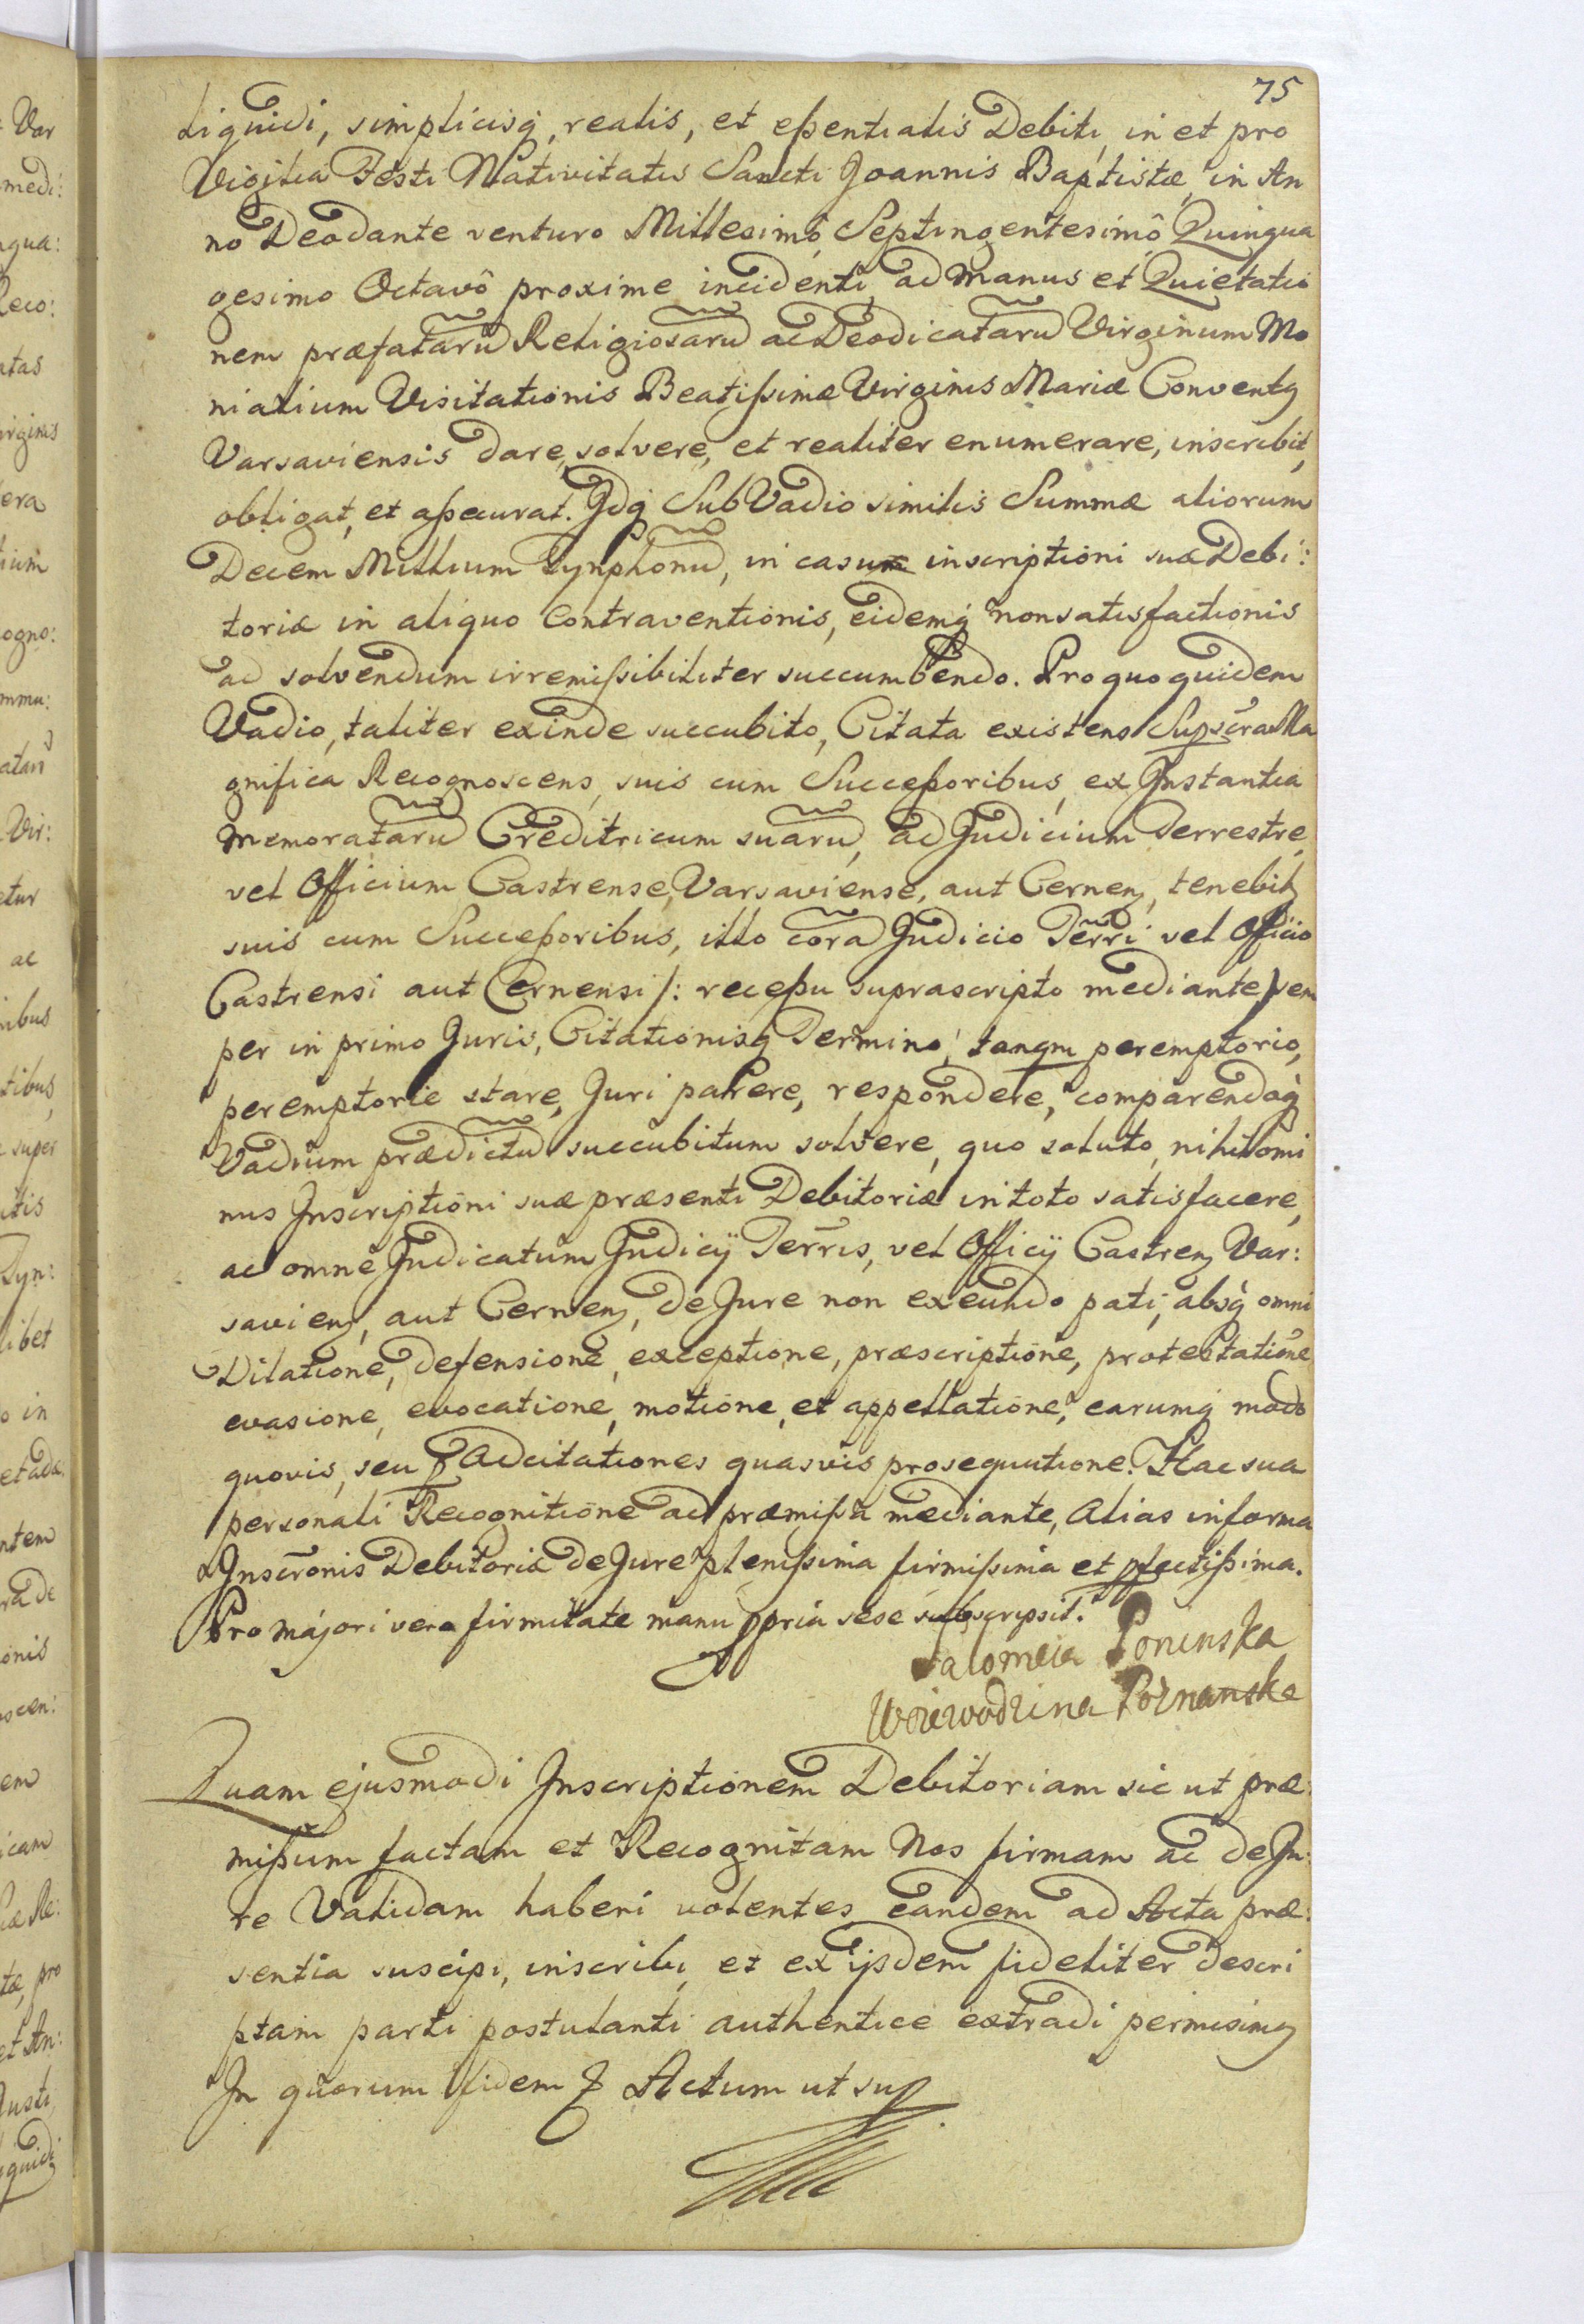 75
Liquidi, simplicisq, realis, et eßentialis Debiti, in et pro
Vigilia Festi Nativitatis Sancti Joannis Baptistæ, in An
no Deodante venturo Millesimô Septingentesimô Quinqua
gesimo Octavô proxime incidenti, ad manus et Quietatio
nem præfatarũ Religiosarũ ac Deodicatarũ Virginum Mo
nialium Visitationis Beatißimæ Virginis Mariæ Conventq
Varsaviensis dare, solvere, et realiter enumerare, inscribit,
obligat, et aßecurat. Idq Sub Vadio similis Summæ aliorum
Decem Millium Tynphonũ, in casum inscriptioni suæ Debi:
toriæ in aliquo Contraventionis, eidemq non satisfactionis
ad solvendum irremißibiliter succumbendo. Pro quo quidem
Vadio, taliter exinde succubito, Citata existens Supscra Ma
gnifica Recognoscens, suis cum Succeßoribus, ex Instantia
memoratarũ Creditricum suarũ, ad Judicium Terrestre,
vel Officium Castrense, Varsaviense, aut Cernen, tenebit
suis cum Succeßoribus, illo corã Judicio Terri vel Officio
Castrensi aut Cernensi /: receßu suprascripto mediante) sem
per in primo Juris, Citationisq Termino, tanqm peremptorio,
peremptorie stare, Juri parere, respondere, comparendoq
Vadium prædictũ succubitum solvere, quo soluto, nihilomi
nus Inscriptioni suæ præsenti Debitoriæ in toto satisfacere,
ac omne Judicatum Judicÿ Terris, vel Officÿ Castren Var:
savien, aut Cernen, de Jure non exeundo pati, absq omni
Dilatione, defensione, exceptione, præscriptione, protestatione
evasione, evocatione, motione, et appellatione, earumq modo
quovis, seu p Adcitationes quasvis prosequutione. Hac sua
personali Recognitione ad præmißa mediante, Alias in forma
Inscronis Debitoriæ de Jure plenißima firmißima et pfectißima.
Pro majori vero firmitate manu ppria sese subscripsit.
Salomeia Poninska
Woiewodzina Poznanska
Quam ejusmodi Inscriptionem Debitoriam sic ut præ:
mißum factam et Recognitam Nos firmam ac de Ju:
re Validam haberi volentes, eandem ad Acta præ:
sentia suscipi, inscribi, et ex ijsdem fideliter descri
ptam parti postulanti authentice extradi permisimq
In quorum fidem Actum ut sup